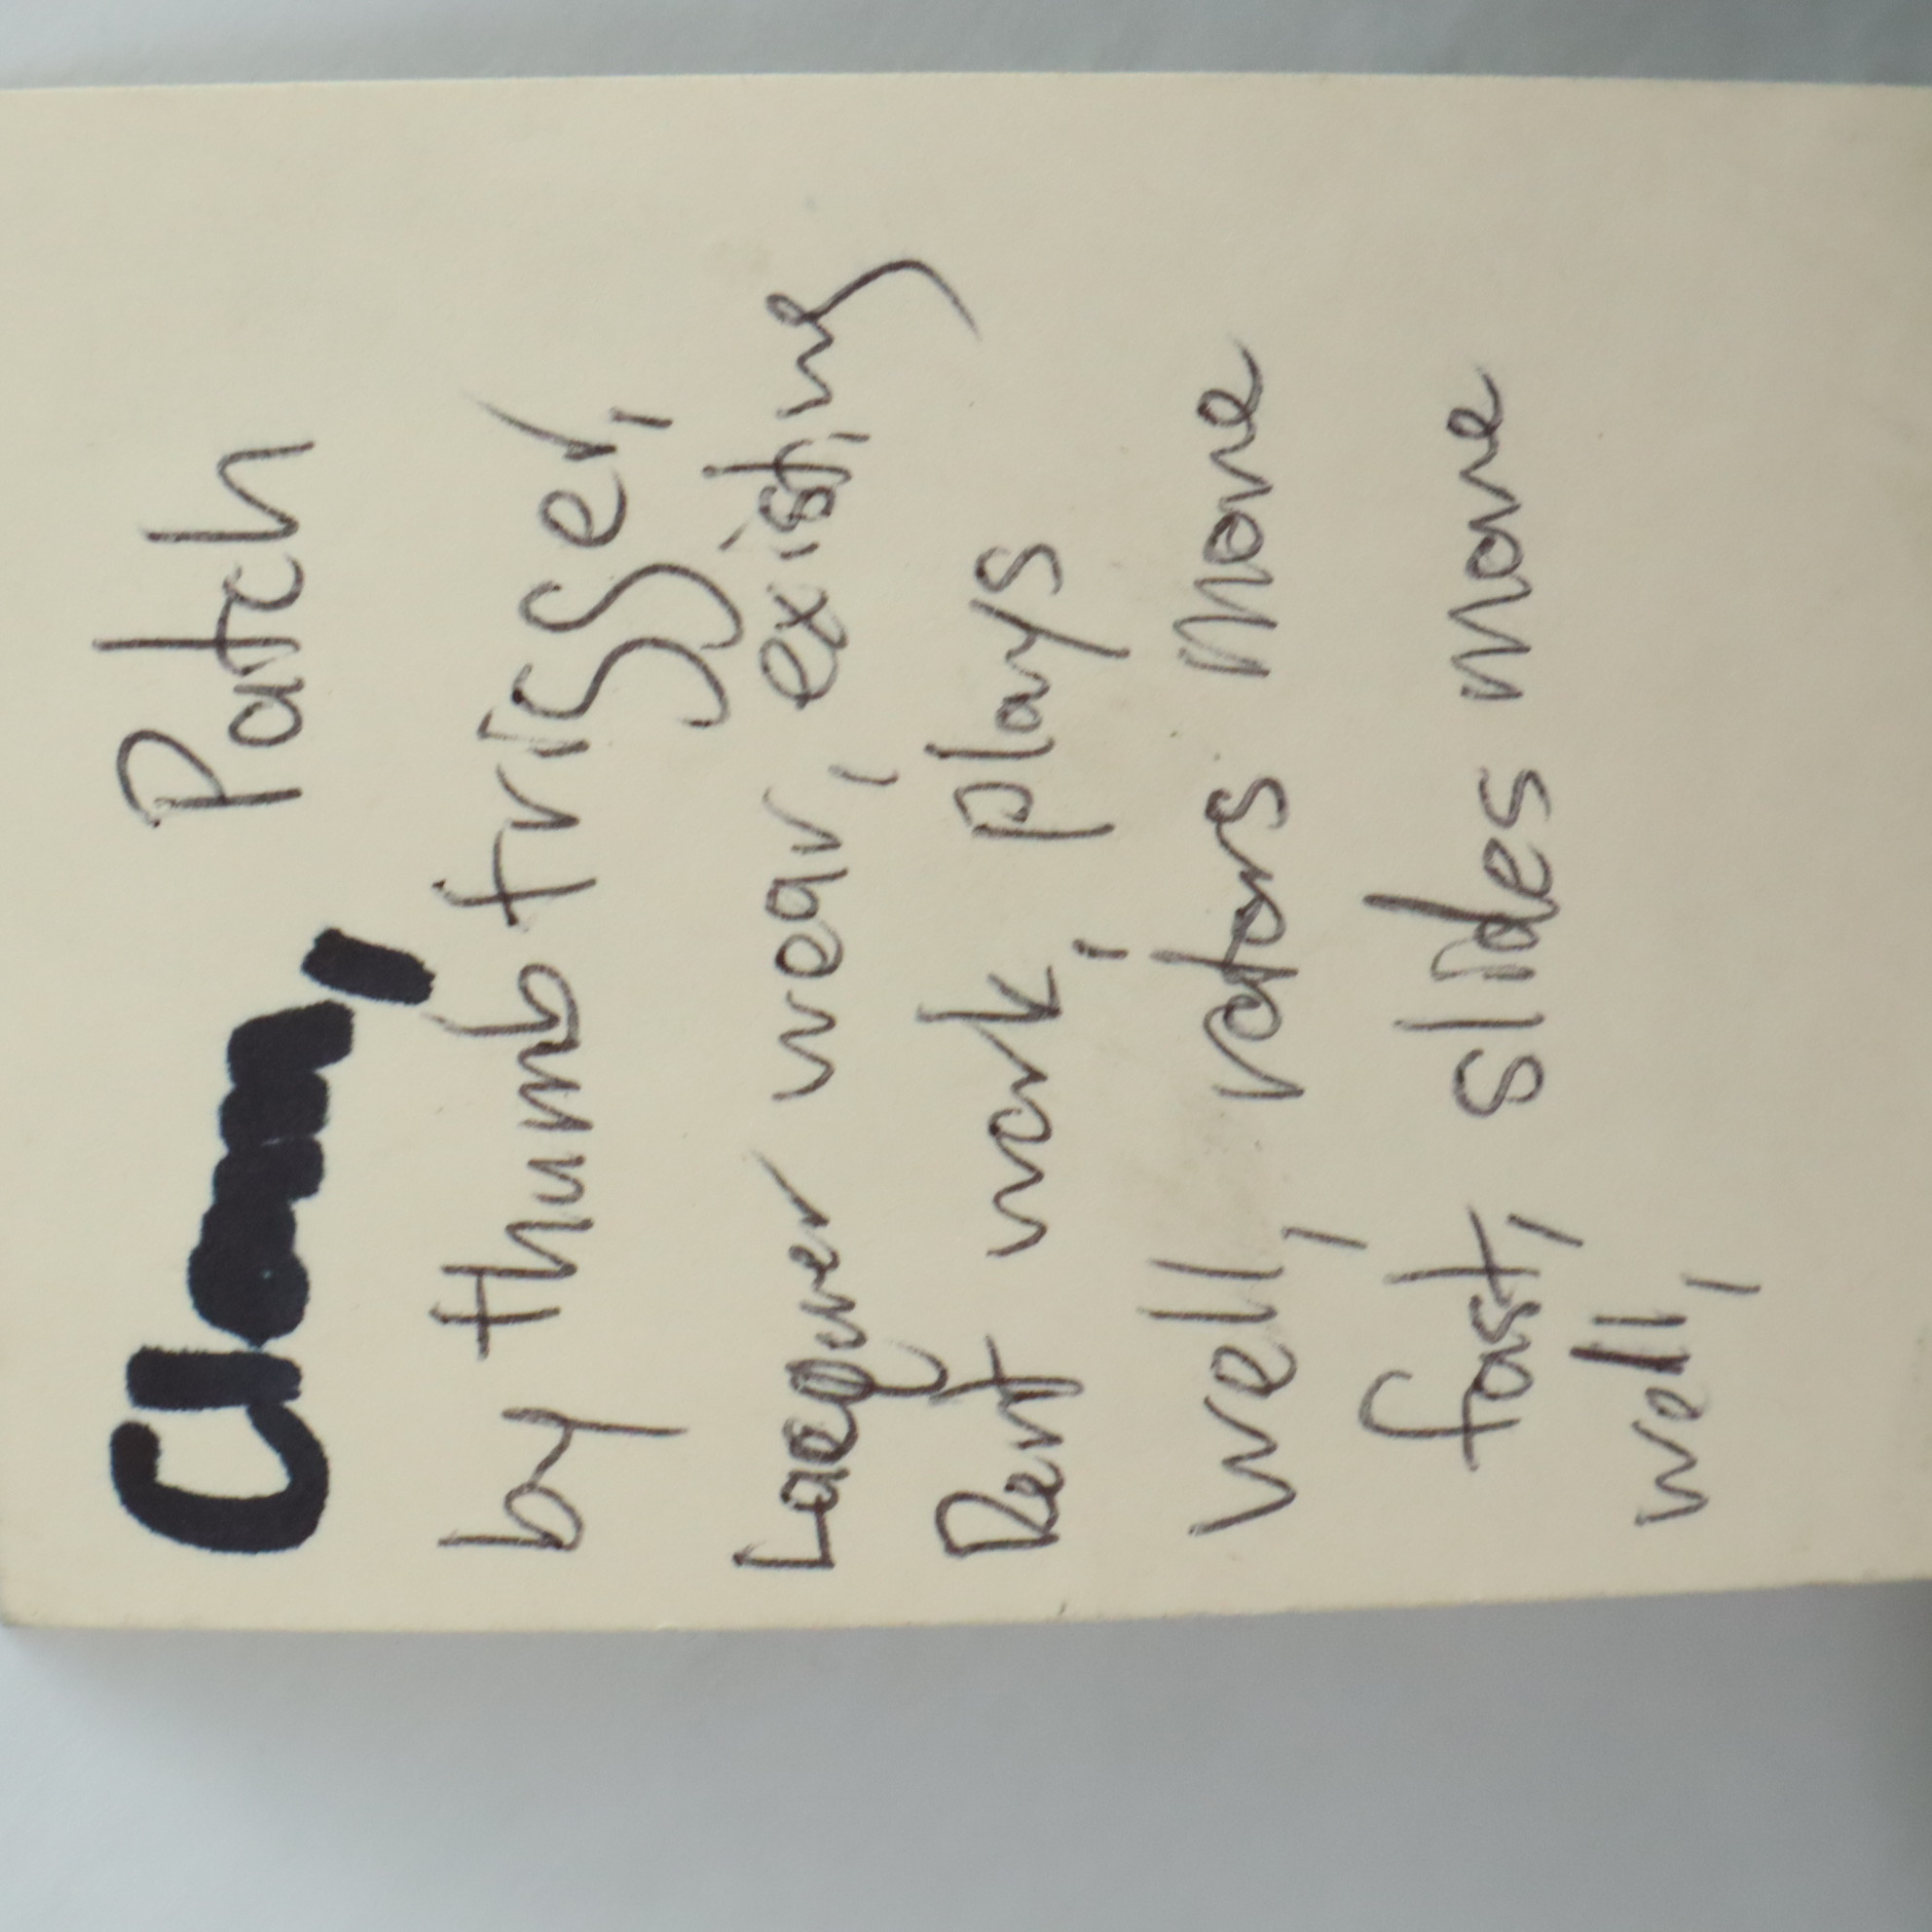 Clean, Patch
by thumb trigger,
Lacquer wear, existing
Dent work, plays
well, rotors move
fast, slides move
well,